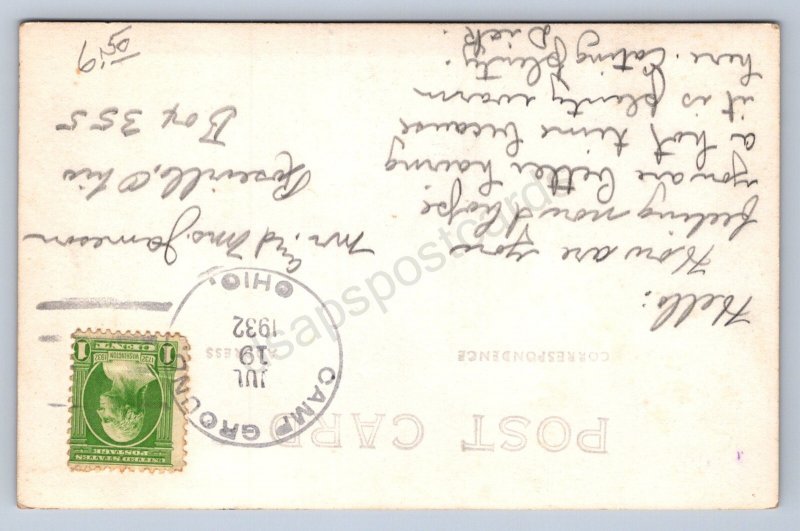 POST CARD
CORRESPONDENCE
ADDRESS
Hello:
How are you
feeling now I hope
you are better having
a hot time because
it is plenty warm
here. Eating plenty.
Dick.
CAMP GROUND
OHIO.
JUL
19
1932
UNITED STATES
POSTAGE
1732 WASHINGTON 1932
1 CENT 1
Mr. & Mrs. Jameson
Roseville, Ohio
Box 355
jsapspostcards